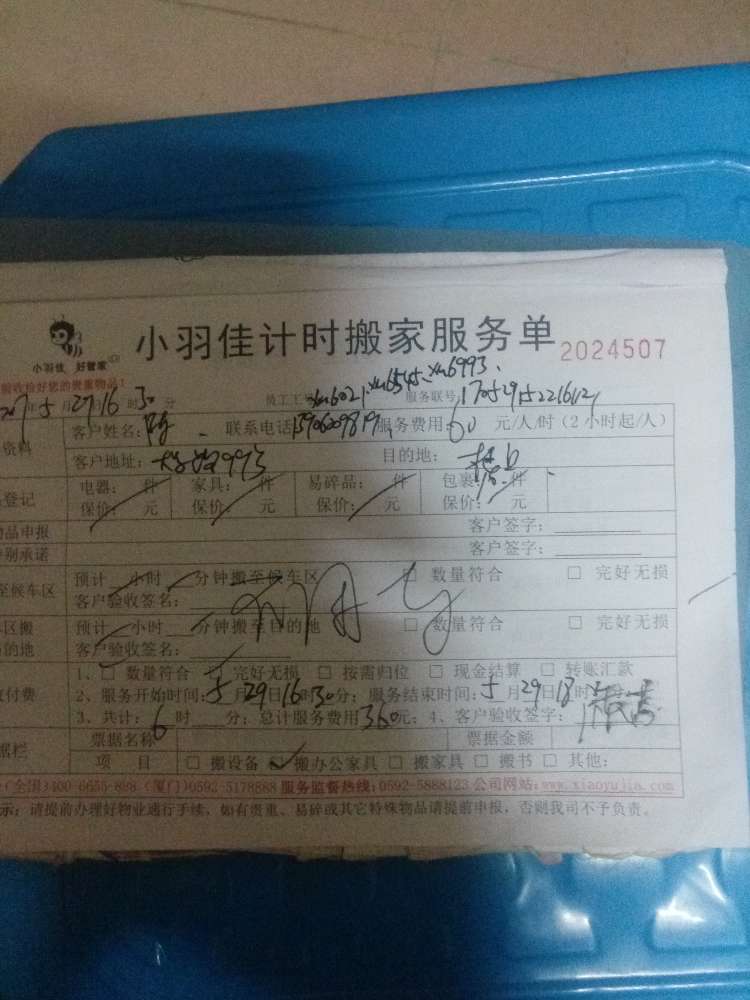 小羽佳计时搬家服务单 2024507
小羽佳 好管家
验收检好您的贵重物品!
年5月29日16时30分 员工工号 xm6021.xm6545.xm6993. 服务联号:
资料 客户姓名: 联系电话 服务费用:60元/人/时(2小时起/人)
客户地址: 目的地:
登记 电器: 件 家具: 件 易碎品: 件 包裹: 件
保价: 元 保价: 元 保价: 元 保价: 元
物品申报 客户签字:
特别承诺 客户签字:
至候车区 预计 小时 分钟搬至候车区 □ 数量符合 □ 完好无损
客户验收签名:
区搬 预计 小时 分钟搬至目的地 □ 数量符合 □ 完好无损
的地 客户验收签名:
1、□ 数量符合 完好无损 □ 按需归位 □ 现金结算 □ 转账汇款
付费 2、服务开始时间:5月29日16时30分; 服务结束时间:5月29日18时 分;
3、共计:6时 分; 总计服务费用360元; 4、客户验收签字:
票据名称 票据金额
据栏 项 目 □ 搬设备 ✓ 搬办公家具 □ 搬家具 □ 搬书 □ 其他:
(全国)400-6655-898 (厦门)0592-5178588 服务监督热线:0592-5888123 公司网站:www.xiaoyujia.com
示: 请提前办理好物业通行手续, 如有贵重、易碎或其它特殊物品请提前申报, 否则我司不予负责。